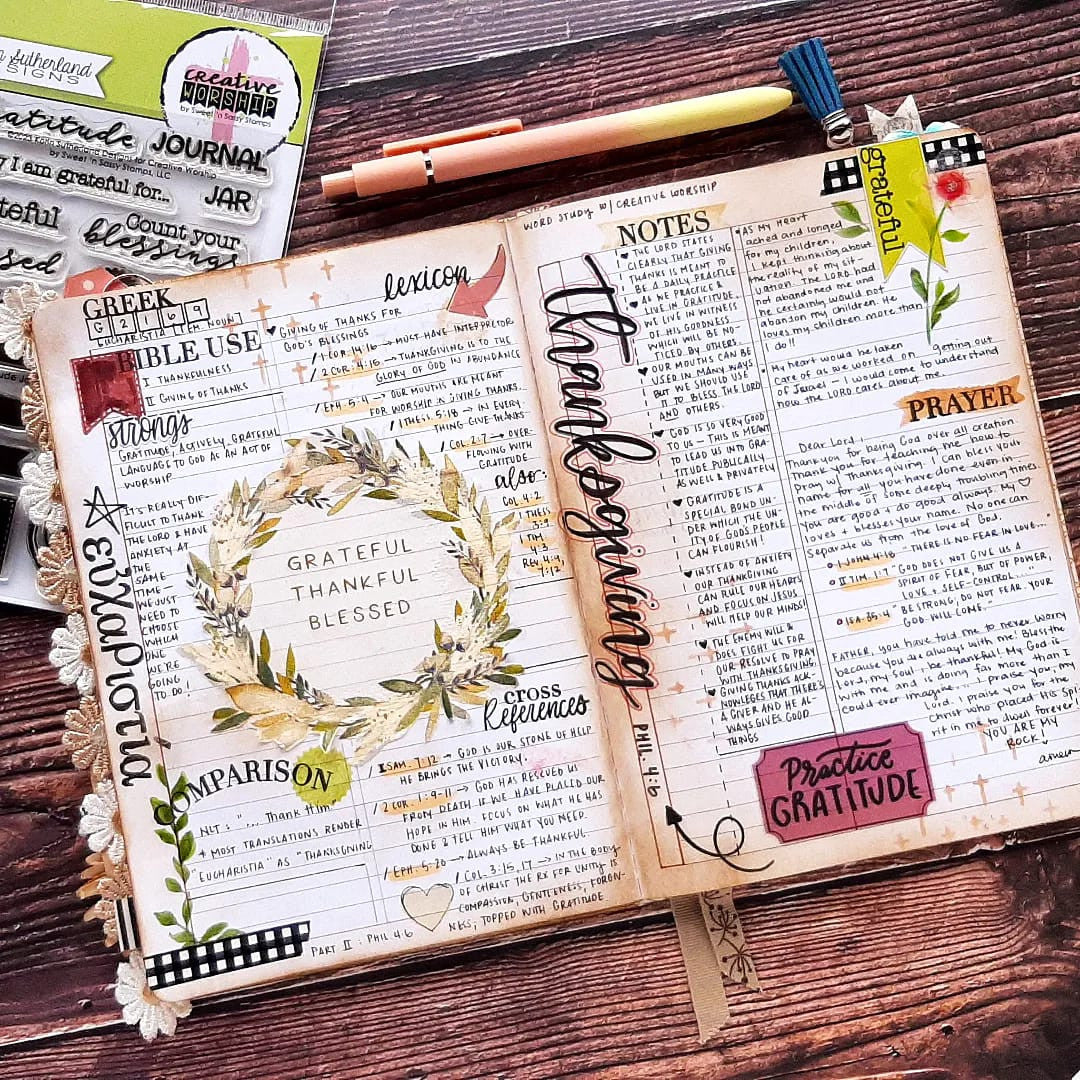 Sutherland
SIGNS
Creative
WORSHIP
by Sweet 'n Sassy Stamps
JOURNAL
by Sweet 'n Sassy Stamps, LLC
I am grateful for...
JAR
Count your
blessings
GREEK
G 2 1 6 9
EUCHARISTIA (FEM NOUN)
BIBLE USE
I THANKFULNESS
II GIVING OF THANKS
strongs
GRATITUDE, ACTIVELY GRATEFUL
LANGUAGE TO GOD AS AN ACT OF
WORSHIP
IT'S REALLY DIF-
FICULT TO THANK
THE LORD & HAVE
ANXIETY AT
THE
SAME-
TIME-
WE JUST
NEED TO
CHOOSE
WHICH
ONE
WE'RE
GOING
TO DO!
εὐχαριστία
lexicon
GIVING OF THANKS FOR
GOD'S BLESSINGS
/ 1 COR. 14:16 → MOST HAVE INTERPRETOR
/ 2 COR. 4:15 → THANKSGIVING IS TO THE
GLORY OF GOD IN ABUNDANCE
/ EPH. 5:4 → OUR MOUTHS ARE MEANT
FOR WORSHIP & GIVING THANKS.
/ 1 THESS. 5:18 → IN EVERY
THING-GIVE-THANKS
/ COL. 2:7 → OVER-
FLOWING WITH
GRATITUDE
also:
COL 4:2
1 THESS
3:9
1 TIM
4:3
REV. 4:9
7:12
GRATEFUL
THANKFUL
BLESSED
COMPARISON
NLT: "... Thank Him"
+ MOST TRANSLATIONS RENDER
"EUCHARISTIA" AS "THANKSGIVING
CROSS
References
/ 1 SAM. 7:12 → GOD IS OUR STONE OF HELP
HE BRINGS THE VICTORY.
/ 2 COR. 1:9-11 → GOD HAS RESCUED US
FROM DEATH IF WE HAVE PLACED OUR
HOPE IN HIM. FOCUS ON WHAT HE HAS
DONE & TELL HIM WHAT YOU NEED.
/ EPH. 5:20 → ALWAYS BE THANKFUL.
/ COL. 3:15, 17 → IN THE BODY
OF CHRIST THE RX FOR UNITY IS
COMPASSION, GENTLENESS, FORGIV-
NESS; TOPPED WITH GRATITUDE
PART II: PHIL 4:6
WORD STUDY W/ CREATIVE WORSHIP
thanksgiving
PHIL. 4:6
NOTES
THE LORD STATES
CLEARLY THAT GIVING
THANKS IS MEANT TO
BE A DAILY PRACTICE
AS WE PRACTICE &
LIVE IN GRATITUDE,
WE LIVE IN WITNESS
OF HIS GOODNESS
WHICH WILL BE NO-
TICED BY OTHERS.
OUR MOUTHS CAN BE
USED IN MANY WAYS
BUT WE SHOULD USE
IT TO BLESS THE LORD
AND OTHERS.
GOD IS SO VERY GOOD
TO US - THIS IS MEANT
TO LEAD US INTO GRA-
TITUDE PUBLICALLY
AS WELL & PRIVATELY
GRATITUDE IS A
SPECIAL BOND UN-
DER WHICH THE UN-
ITY OF GOD'S PEOPLE
CAN FLOURISH!
INSTEAD OF ANXIETY
OUR THANKSGIVING
CAN RULE OUR HEARTS
AND FOCUS ON JESUS
WILL MELD OUR MINDS!
THE ENEMY WILL &
DOES FIGHT US FOR
OUR RESOLVE TO PRAY
WITH THANKSGIVING.
GIVING THANKS ACK-
NOWLEGES THAT THERE'S
A GIVER AND HE AL-
WAYS GIVES GOOD
THINGS
As my heart
ached and longed
for my children,
I kept thinking about
the reality of my sit-
uation. The LORD had
not abandoned me and
he certainly would not
abandon my children. He
loves my children more than
I do!!
My heart would be taken
care of as we worked on getting out
of Israel - I would come to understand
how the LORD cares about me.
grateful
PRAYER
Dear Lord,
Thank you for being God over all creation.
Thank you for teaching me how to
pray w/ thanksgiving. I can bless your
name for all you have done even in
the middle of some deeply troubling times.
You are good & do good always. My
loves & blesses your name. No one can
separate us from the love of God.
1 JOHN 4:18 "THERE IS NO FEAR IN LOVE..."
II TIM. 1:7 "GOD DOES NOT GIVE US A
SPIRIT OF FEAR, BUT OF POWER,
LOVE & SELF-CONTROL..."
ISA. 35:4 "BE STRONG; DO NOT FEAR. YOUR
GOD WILL COME."
FATHER, you have told me to never worry
because you are always with me! Bless the
Lord, my soul & be thankful! My God is
with me and is doing far more than I
could ever imagine... I praise you, my
Lord. I praise you for the
Christ who placed His Spi
rit in me to dwell forever!
YOU ARE MY
ROCK!
amen
Practice
GRATITUDE